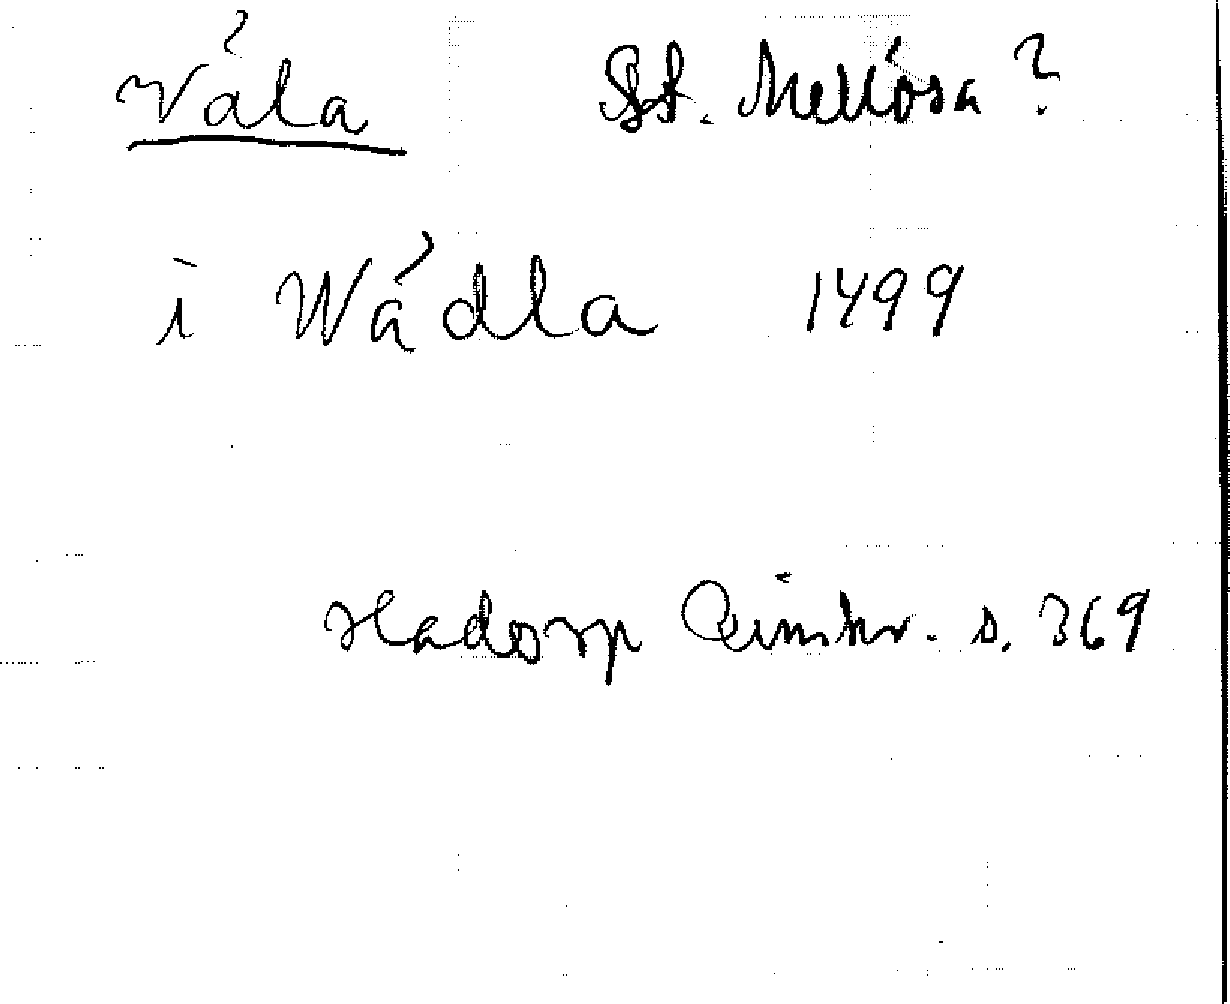 Våla St. Mellösa?
i Wådla 1499
Hadorp Rimkr. s. 369